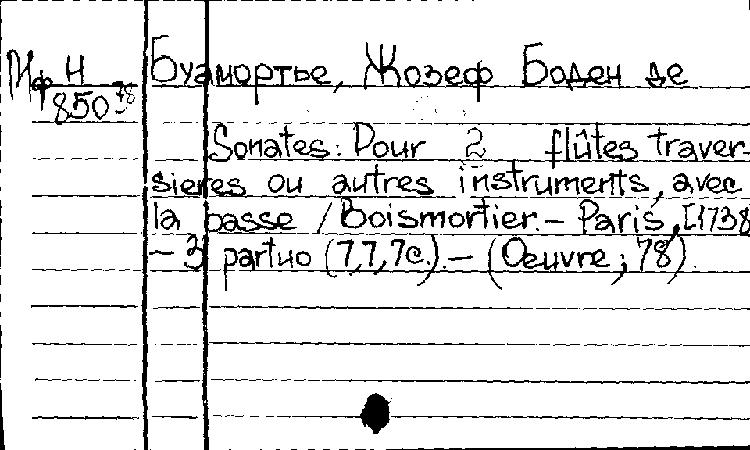 Мф Ч Буамортье, Жозеф Боден де
850 78
Sonates: Pour 2 flûtes traver-
sieres ou autres instruments, avec
la basse / Boismortier. – Paris, [1738
– 3 partио (7,7,7с.). – (Oeuvre; 78)